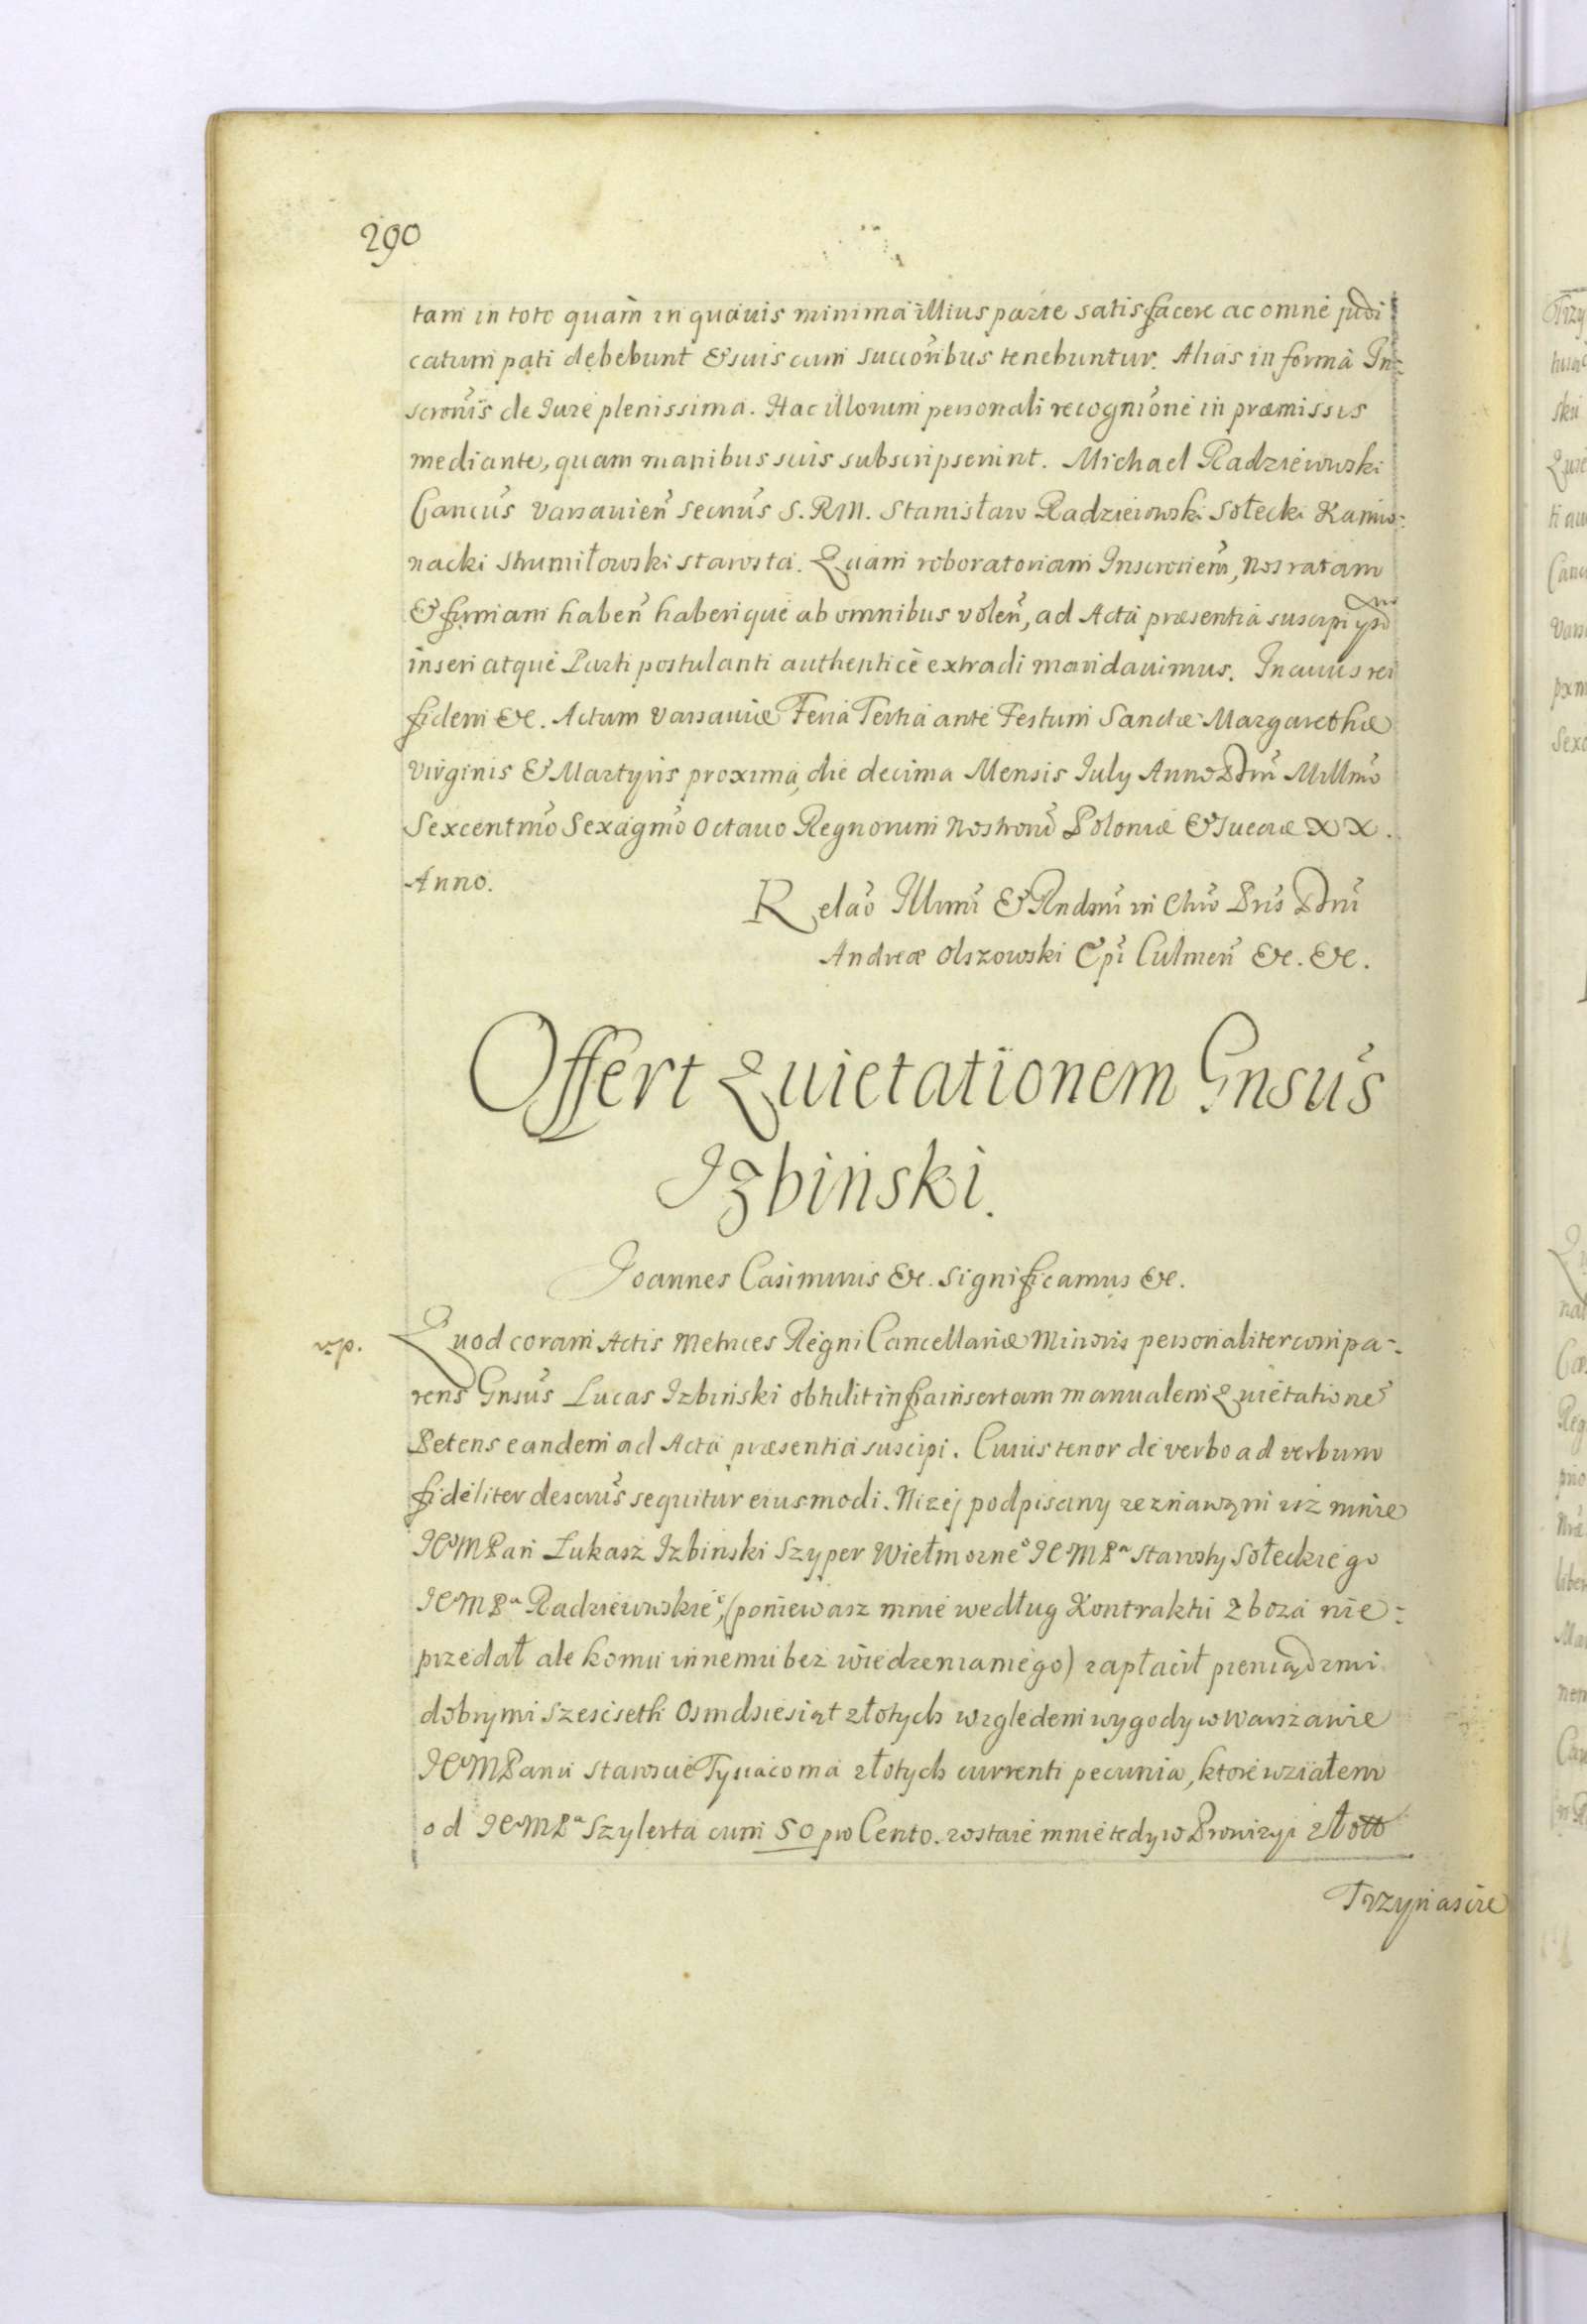 290
tam in toto quàm in quavis minima illius parte satisfacere ac omne judi
catum pati debebunt & suis cum succōribus tenebuntur. Alias in forma In=
scrōnis de Iure plenissima. Hac illorum personali recogniōne in præmissis
mediante, quam manibus suis subscripserunt. Michael Radzieiowski
Cancūs Varsavień Secrūs S. R. M. Stanisław Radzieiowski Sołecki Kamio=
nacki Strumiłowski starosta. Quam roboratoriam Inscrōnem, Nos ratam
& firmam habeñ haberique ab omnibus voleñ, ad Acta præsentia suscipi
inseri atque Parti postulanti authenticè extradi mandavimus. In cuius rei
fidem &c. Actum Varsaviæ Feria Tertia ante Festum Sanctæ Margarethæ
Virginis & Martyris proxima, die decima Mensis July Anno Dnī Millmō
Sexcentmō Sexagmō Octavo Regnorum Nostrorū Poloniæ & Sueciæ XX.
Anno.
Relaō Illmi & Rndmi in Chrō Pris Dnī
Andreæ Olszowski Epī Culmeñ &c. &c.
Offert Quietationem Gnsūs
Izbiński.
Joannes Casimirus &c. Significamus &c.
Quod coram Actis Metrices Regni Cancellariæ Minoris personaliter compa=
rp.
rens Gnsūs Lucas Izbiński obtulit infrainsertam manualem Quietationē
Petens eandem ad Acta præsentia suscipi. Cuius tenor de verbo ad verbum
fideliter descrūs sequitur eiusmodi. Nizej podpisany zeznawam iż mnie
JEMPan Łukasz Izbinski Szyper Wielmozneº JEMPª Starosty Sołeckiego
JEMPª Radzieiowskieº, (poniewasz mnie według Kontraktu Zboza nie=
przedał ale komu innemu bez wiedzenia mego) zapłacił pieniądzmi
dobrymi szescseth Osmdziesiąt złotych względem wygody w Warszawie
JEMPanu Staroscie Tysiącoma złotych currenti pecunia, ktore wziałem
od JEMPª Szylerta cum 50 pro Cento. zostaie mnie tedy w Prowizyi złott
Trzynascie